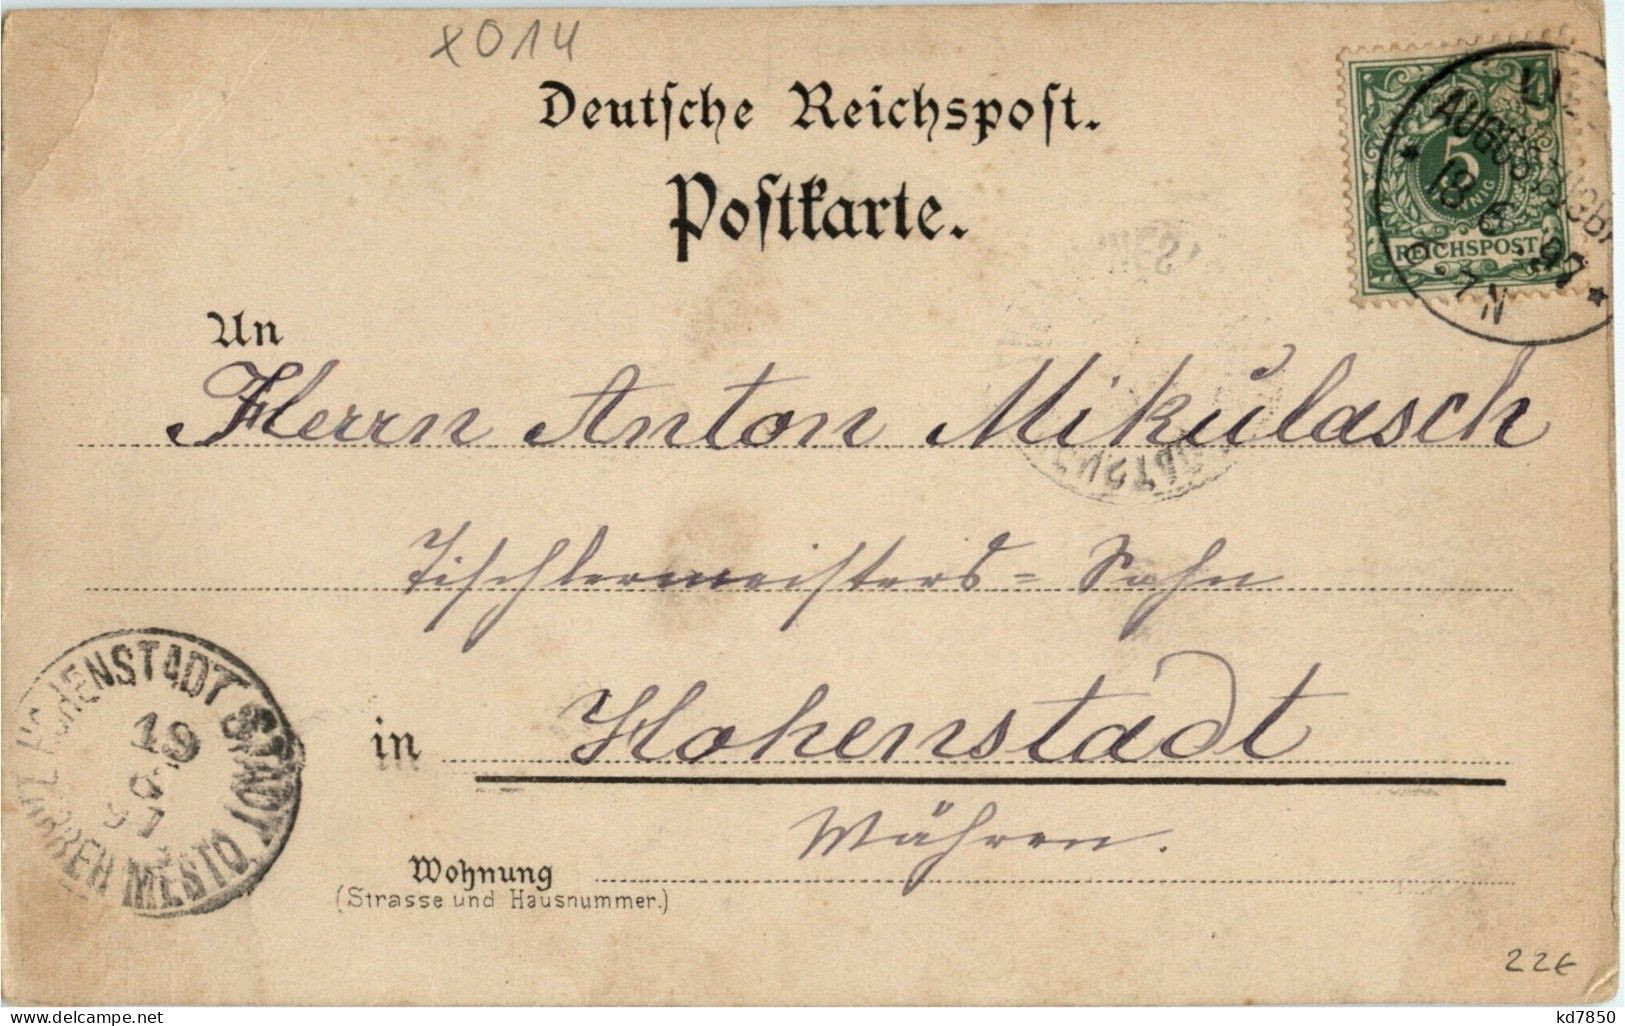 x014
Deutsche Reichspost.
Postkarte.
5
REICHSPOST
AUGUS
18 6 97
6-7 N
An
Herrn Anton Mikulasch
Tischlermeisters = Sohn
HOHENSTADT STADT
MESTO
19
97
in Hohenstadt
Mähren.
Wohnung
(Strasse und Hausnummer.)
22€
kd7850